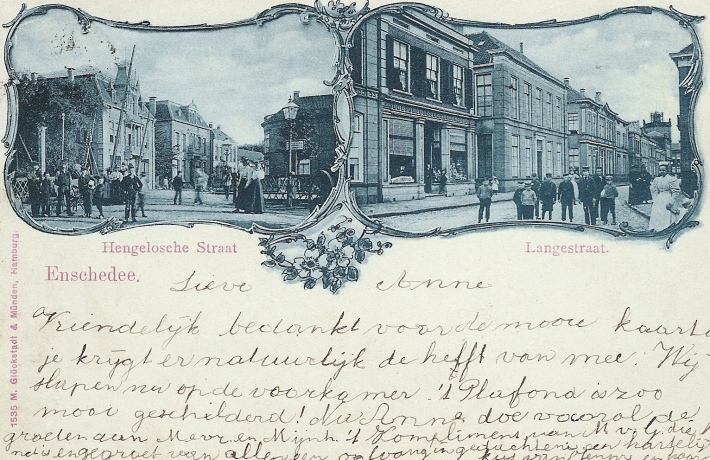 Hengelosche Straat
Langestraat.
Enschedee.
1535 M. Glückstadt & Münden, Hamburg.
Lieve Anne
Vriendelijk bedankt voor de mooie kaart
je krijgt er natuurlijk de helft van mee. Wij
slapen nu op de voorkamer. 't Plafond is zoo
mooi geschilderd! Nu Anne doe vooral de
groeten aan Mevr. en Mijnh. 't Komplimens van M
gegroet van allen een hartelij
kus van